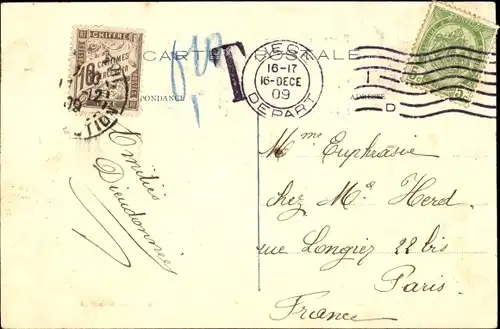 CARTE POSTALE
CHIFFRE
10
À PERCEVOIR
T
LIEGE
16-17
16-DECE
09
DEPART
1
D
PONDANCE
ADRESSE
Amitiés
Dieudonnée
Mme Euphrasie
chez Me Herd
rue Longiez 22 bis
Paris
France